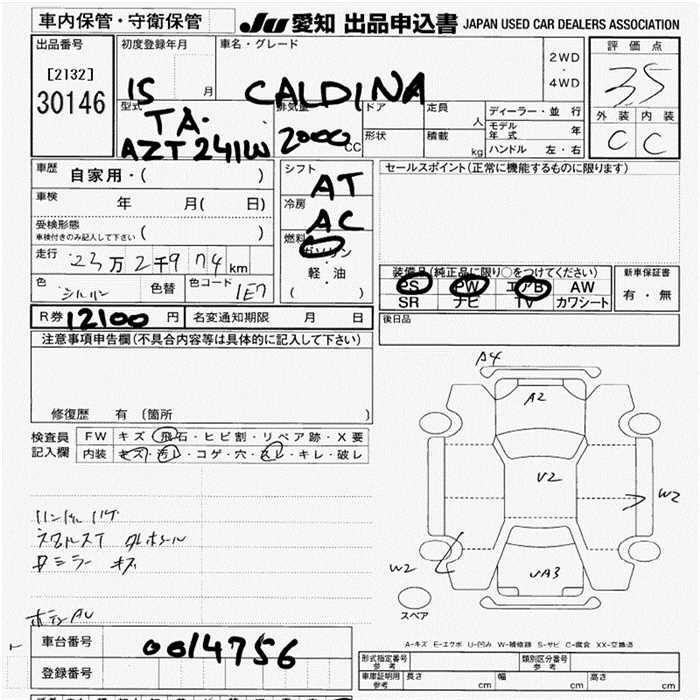 車内保管・守衛保管
JU 愛知 出品申込書 JAPAN USED CAR DEALERS ASSOCIATION
出品番号
[2132]
30146
初度登録年月
15 月
車名・グレード
CALDINA
2WD
・
4WD
評価点
35
外装 内装
C C
型式
TA-
AZT241W
排気量
2000 CC
ドア
形状
定員 人
積載 kg
ディーラー・並行
モデル年式 年
ハンドル 左・右
車歴 自家用・( )
車検 年 月( 日)
受検形態
車検付きのみ記入して下さい ( )
走行 23万2千974km
色 シルバー 色替 色コード 1E7
シフト
AT
冷房
AC
燃料
ガソリン
軽・油
( )
セールスポイント(正常に機能するものに限ります)
装備品(純正品に限り○をつけてください)
PS PW エアB AW
SR ナビ TV カワシート
新車保証書
有・無
R券 12100 円 名変通知期限 月 日
後日品
注意事項申告欄(不具合内容等は具体的に記入して下さい)
修復歴 有 [箇所 ]
検査員
記入欄
FW キズ・飛石・ヒビ割・リペア跡・X要
内装 キズ・汚レ・コゲ・穴・スレ・キレ・破レ
ハンドルハゲ
A4
A2
V2
W2
W2
UA3
スペア
A-キズ E-エクボ U-凹み W-補修跡 S-サビ C-腐食 XX-交換済
車台番号 0014756
登録番号
形式指定番号
参考
類別区分番号
参考
車庫証明用
参考
長さ cm 幅 cm 高さ cm